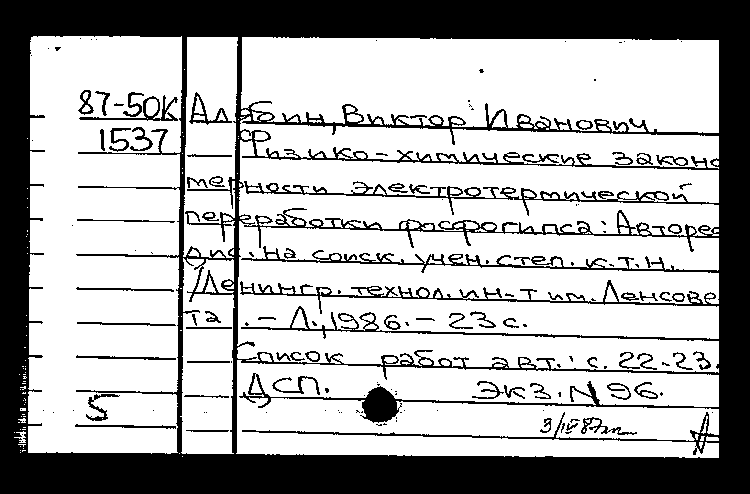 87-50К Алабин, Виктор Иванович.
1537 Физико-химические законо
мерности электротермической
переработки фосфогипса: Авторе
дис. на соиск. учен. степ. к.т.н.
/Ленингр. технол. ин-т им. Ленсове
та. - Л., 1986. - 23 с.
Список работ авт.: с. 22-23.
ДСП. Экз. N 96.
5